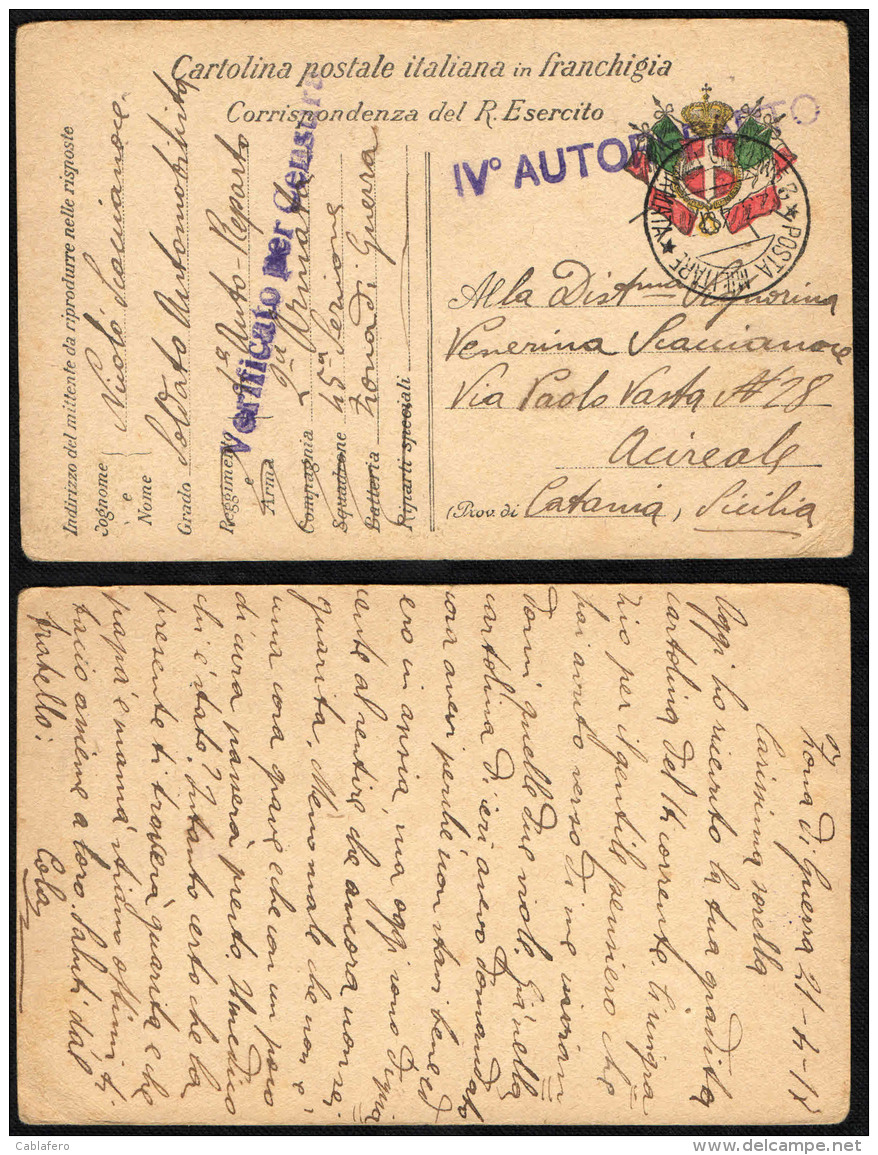 Cartolina postale italiana in franchigia
Corrispondenza del R. Esercito
IVº AUTOREPARTO
POSTA MILITARE
Verificato per Censura
Indirizzo del mittente da riprodurre nelle risposte
Cognome e Nome Nicolò Scaccianoce
Grado Soldato Automobilista
Reggimento Auto-Reparto
e
Arma
Compagnia 2ª Armata
Squadrone
Batteria Zona di Guerra
Riparti speciali
Alla Distma Signorina
Venerina Scaccianoce
Via Paolo Vasta Nº 28
Acireale
(Prov. di Catania, Sicilia
Zona di guerra 21-4-17
Carissima sorella
Oggi ho ricevuto la tua gradita
cartolina del 16 corrente. Ti ringra=
zio per il gentile pensiero che
hai avuto verso di me invian=
domi quelle due viole. Già nella
cartolina di ieri avevo domandato
cosa avevi perchè non stavi bene ed
ero in ansia, ma oggi sono
cente al sentire che ancora non sei
guarita. Meno male che non è
una cosa grave e che con un poco
di cura passerà presto. Il medico
chi è stato? Intanto certo che la
presente ti troverà guarita e che
papà e mamà stiano ottimi ti
bacio assieme a loro. Saluti dal
fratello:
Cola
Cablafero
delcampe.net